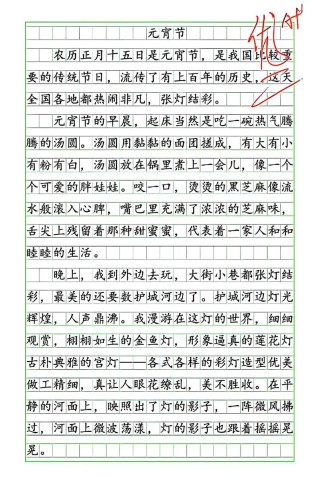 元宵节
优A+
农历正月十五日是元宵节，是我国比较重
要的传统节日，流传了有上百年的历史，这天
全国各地都热闹非凡，张灯结彩。
元宵节的早晨，起床当然是吃一碗热气腾
腾的汤圆。汤圆用黏黏的面团搓成，有大有小
有粉有白，汤圆放在锅里煮上一会儿，像一个
个可爱的胖娃娃。咬一口，烫烫的黑芝麻像流
水般滚入心脾，嘴巴里充满了浓浓的芝麻味，
舌尖上残留着那种甜蜜蜜，代表着一家人和和
睦睦的生活。
晚上，我到外边去玩，大街小巷都张灯结
彩，最美的还要数护城河边了。护城河边灯光
辉煌，人声鼎沸。我漫游在这灯的世界，细细
观赏，栩栩如生的金鱼灯，形象逼真的莲花灯
古朴典雅的宫灯——各式各样的彩灯造型优美
做工精细，真让人眼花缭乱，美不胜收。在平
静的河面上，映照出了灯的影子，一阵微风拂
过，河面上微波荡漾，灯的影子也跟着摇摇晃
晃。